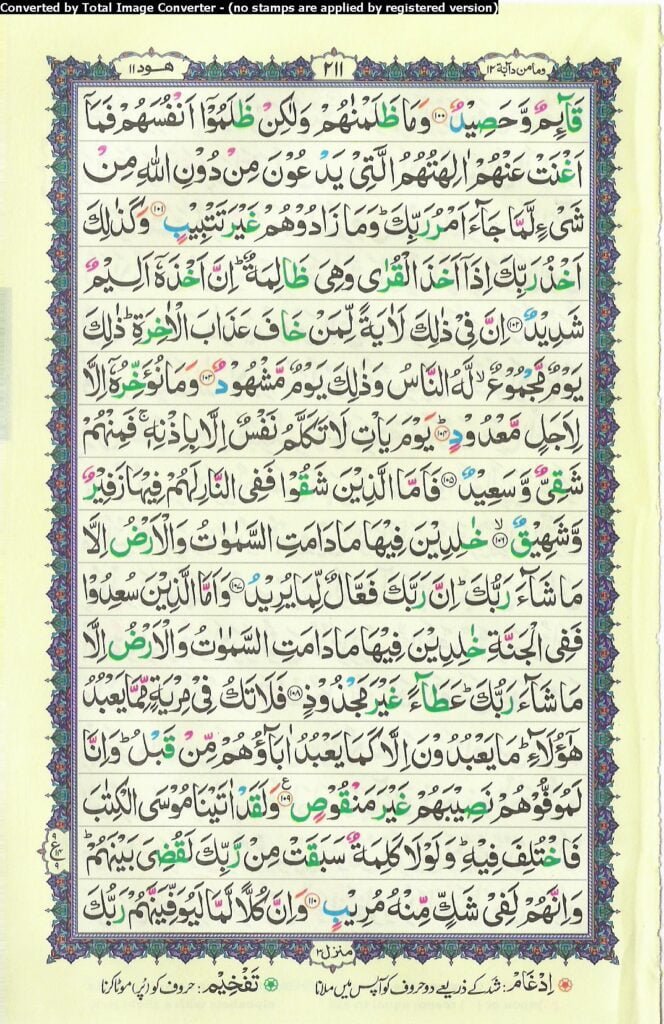 Converted by Total Image Converter - (no stamps are applied by registered version)
ومامن دآبة ١٢
٢١١
هود ١١
قَآئِمٌ وَّحَصِيۡدٌ ﴿۱۰۰﴾ وَمَا ظَلَمۡنٰهُمۡ وَلٰكِنۡ ظَلَمُوۡۤا اَنۡفُسَهُمۡ فَمَاۤ
اَغۡنَتۡ عَنۡهُمۡ اٰلِهَتُهُمُ الَّتِىۡ يَدۡعُوۡنَ مِنۡ دُوۡنِ اللّٰهِ مِنۡ
شَىۡءٍ لَّمَّا جَآءَ اَمۡرُ رَبِّكَؕ وَمَا زَادُوۡهُمۡ غَيۡرَ تَتۡبِيۡبٍ ﴿۱۰۱﴾ وَكَذٰلِكَ
اَخۡذُ رَبِّكَ اِذَاۤ اَخَذَ الۡقُرٰى وَهِىَ ظَالِمَةٌؕ اِنَّ اَخۡذَهٗۤ اَلِيۡمٌ
شَدِيۡدٌ ﴿۱۰۲﴾ اِنَّ فِىۡ ذٰلِكَ لَاٰيَةً لِّمَنۡ خَافَ عَذَابَ الۡاٰخِرَةِؕ ذٰلِكَ
يَوۡمٌ مَّجۡمُوۡعٌۙ لَّهُ النَّاسُ وَذٰلِكَ يَوۡمٌ مَّشۡهُوۡدٌ ﴿۱۰۳﴾ وَمَا نُؤَخِّرُهٗۤ اِلَّا
لِاَجَلٍ مَّعۡدُوۡدٍؕ ﴿۱۰۴﴾ يَوۡمَ يَاۡتِ لَا تَكَلَّمُ نَفۡسٌ اِلَّا بِاِذۡنِهٖۚ فَمِنۡهُمۡ
شَقِىٌّ وَّسَعِيۡدٌ ﴿۱۰۵﴾ فَاَمَّا الَّذِيۡنَ شَقُوۡا فَفِى النَّارِ لَهُمۡ فِيۡهَا زَفِيۡرٌ
وَّشَهِيۡقٌۙ ﴿۱۰۶﴾ خٰلِدِيۡنَ فِيۡهَا مَا دَامَتِ السَّمٰوٰتُ وَالۡاَرۡضُ اِلَّا
مَا شَآءَ رَبُّكَؕ اِنَّ رَبَّكَ فَعَّالٌ لِّمَا يُرِيۡدُ ﴿۱۰۷﴾ وَاَمَّا الَّذِيۡنَ سُعِدُوۡا
فَفِى الۡجَنَّةِ خٰلِدِيۡنَ فِيۡهَا مَا دَامَتِ السَّمٰوٰتُ وَالۡاَرۡضُ اِلَّا
مَا شَآءَ رَبُّكَؕ عَطَآءً غَيۡرَ مَجۡذُوۡذٍ ﴿۱۰۸﴾ فَلَا تَكُ فِىۡ مِرۡيَةٍ مِّمَّا يَعۡبُدُ
هٰٓؤُلَاۤءِؕ مَا يَعۡبُدُوۡنَ اِلَّا كَمَا يَعۡبُدُ اٰبَآؤُهُمۡ مِّنۡ قَبۡلُؕ وَاِنَّا
لَمُوَفُّوۡهُمۡ نَصِيۡبَهُمۡ غَيۡرَ مَنۡقُوۡصٍ ﴿۱۰۹﴾ وَلَقَدۡ اٰتَيۡنَا مُوۡسَى الۡكِتٰبَ
فَاخۡتُلِفَ فِيۡهِؕ وَلَوۡلَا كَلِمَةٌ سَبَقَتۡ مِنۡ رَّبِّكَ لَقُضِىَ بَيۡنَهُمۡؕ
وَاِنَّهُمۡ لَفِىۡ شَكٍّ مِّنۡهُ مُرِيۡبٍ ﴿۱۱۰﴾ وَاِنَّ كُلًّا لَّمَّا لَيُوَفِّيَنَّهُمۡ رَبُّكَ
منزل ٣
اِدغَام: شد کے ذریعے دو حروف کو آپس میں ملانا
تفخِیم: حروف کو (پُر) موٹا کرنا